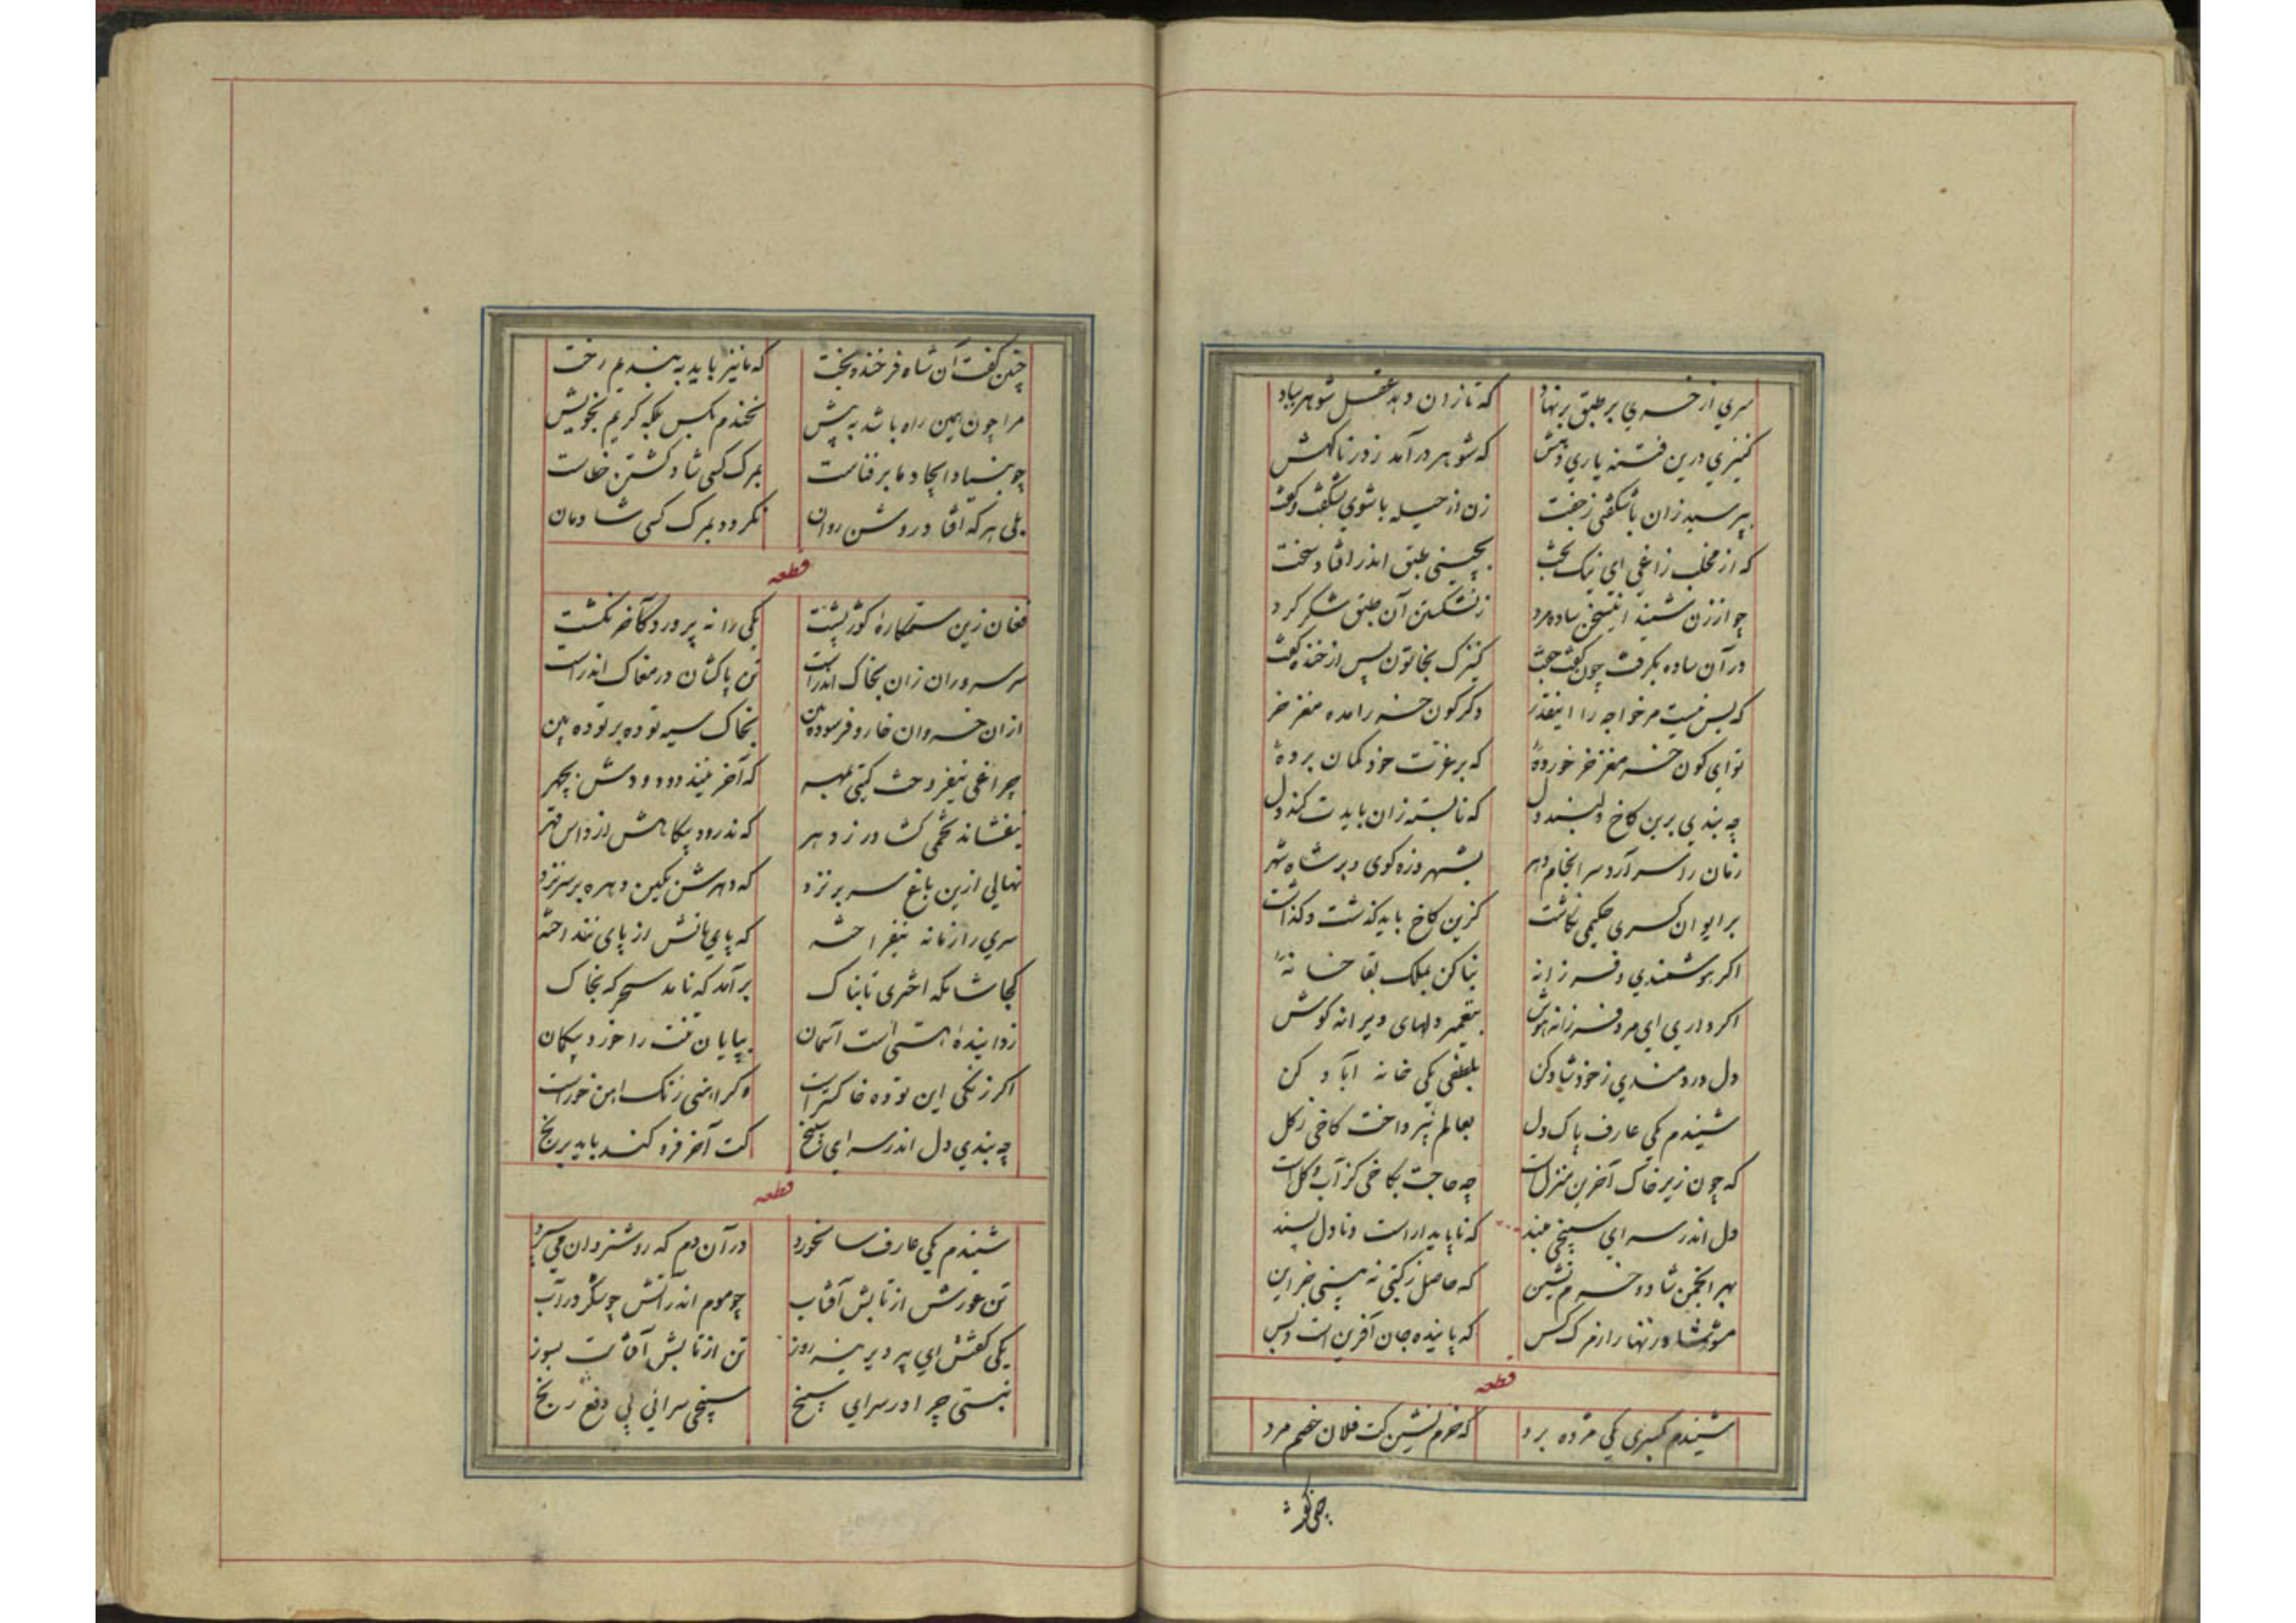 سری از خری بر طبق بر نهاد که تا زان دهد عقل شوهر بباد
کنیزی درین فتنه یاری دهش که شوهر درآمد ز در ناگهش
بپرسید زان با شگفتی ز جفت زن از حیله با شوی بشگفت و گفت
که از مخلب زاغی ای نیک بخت بچینی طبق اندر افتاد سخت
چو از زن شنید اینسخن ساده مرد ز نشکستن آن طبق شکر کرد
در آن ساده بگرفت چون گفت جفت کنیزک بخاتون پس از خنده گفت
که بس نیست مر خواجه را اینقدر دگر کون خر را مده مغز خر
تو ای کون خر مغز خر خوردهٔ که بر عزت خود گمان بردهٔ
چه بندی برین کاخ دلبند دل که نابسته زان بایدت کند دل
زمان را سر آرد سرانجام دهر بشهر و زه کوی و بر شاه شهر
بر ایوان کسری حکیمی نگاشت کزین کاخ باید گذشت و گذاشت
اگر هوشمندی و فرزانه بنا کن بملک بقا خانهٔ
اگر داری ای مرد فرزانه هوش بتعمیر دلهای ویرانه کوش
دل دردمندی ز خود شاد کن بلطفی یکی خانه آباد کن
شنیدم یکی عارف پاک دل بعالم نپرداخت کاخی ز گل
که چون زیر خاک آخرین منزلست چه حاجت بکاخی کز آب و گلست
دل اندر سرای سپنجی مبند که ناپایدار است و نادل پسند
بهر انجمن شاد و خرم نشین که حاصل ز گیتی نه بینی جز این
مشو شاد زنهار از مرگ کس که پاینده جان آفرین است و بس
قطعه
شنیدم بکسری یکی مژده برد که خرم نشین کت فلان خصم مرد
چنین گفت
چنین گفت آن شاه فرخنده بخت که ما نیز باید به بندیم رخت
مرا چون همین راه باشد به پیش نخندم بکس بلکه گریم بخویش
چو بنیاد ایجاد ما بر فناست بمرگ کسی شاد گشتن خطاست
بلی هر که افتاد روشن روان نگردد بمرگ کسی شادمان
قطعه
فغان زین ستمکارهٔ کوژپشت یکی را نه پرورد کآخر نکشت
سر سروران زان بخاک اندراست تن پاکشان در مغاک اندراست
از ان خسروان خار و فرسوده بین بخاک سیه توده بر توده بین
چراغی نیفروخت گیتی بمهر که آخر نیندود دودش بچهر
نیفشاند تخمی کشاورز دهر که ندرود بیگاهش از داس قهر
نهالی ازین باغ سر بر نزد که دهرش بکین دهره بر سر نزد
سری را زمانه نیفراخته که پای‌هانش از پای ننداخته
کجا شامگه اختری تابناک برآمد که نامد سحرگه بخاک
زدایندهٔ هستی است آسمان بپایان تفت را خورد بیگمان
اگر زنگی این توده خاکتراست وگر آهنی زنگ آهن خوراست
چه بندی دل اندر سرای سپنج کت آخر فزو کند باید برنج
قطعه
شنیدم یکی عارف سالخورد در آن دم که روشنروان می سپرد
تن عورش از تابش آفتاب چو موم اندر آتش چو شکر در آب
یکی گفتش ای پیر دیرینه روز تن از تابش آفتابت بسوز
نبستی چرا در سرای سپنج سپنجی سرائی پی دفع رنج